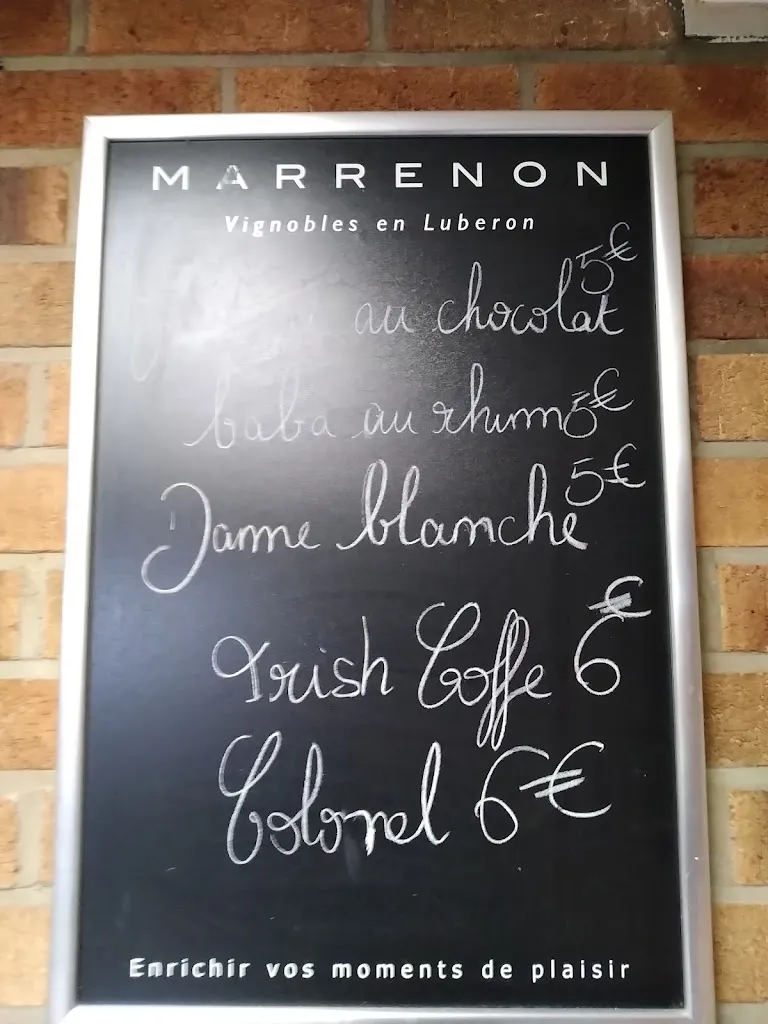 MARRENON
Vignobles en Luberon
au chocolat 5€
baba au rhum 5€
Dame blanche 5€
Irish Coffe 6€
Colonel 6€
Enrichir vos moments de plaisir